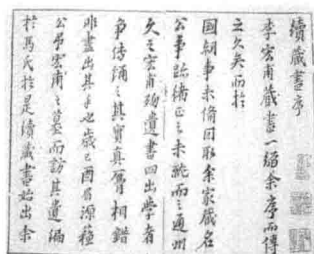 續藏書序
李宏甫藏書一編余序而傳
之久矣而於
國朝事未備因取余家藏名
公事蹟緒正之未就而之通州
久之宏甫歿遺書四出學者
爭傳誦之其實真贗相錯
非盡出其手也歲己酉眉源蘓
公弔宏甫之墓而訪其遺編
於馬氏於是續藏書始出余